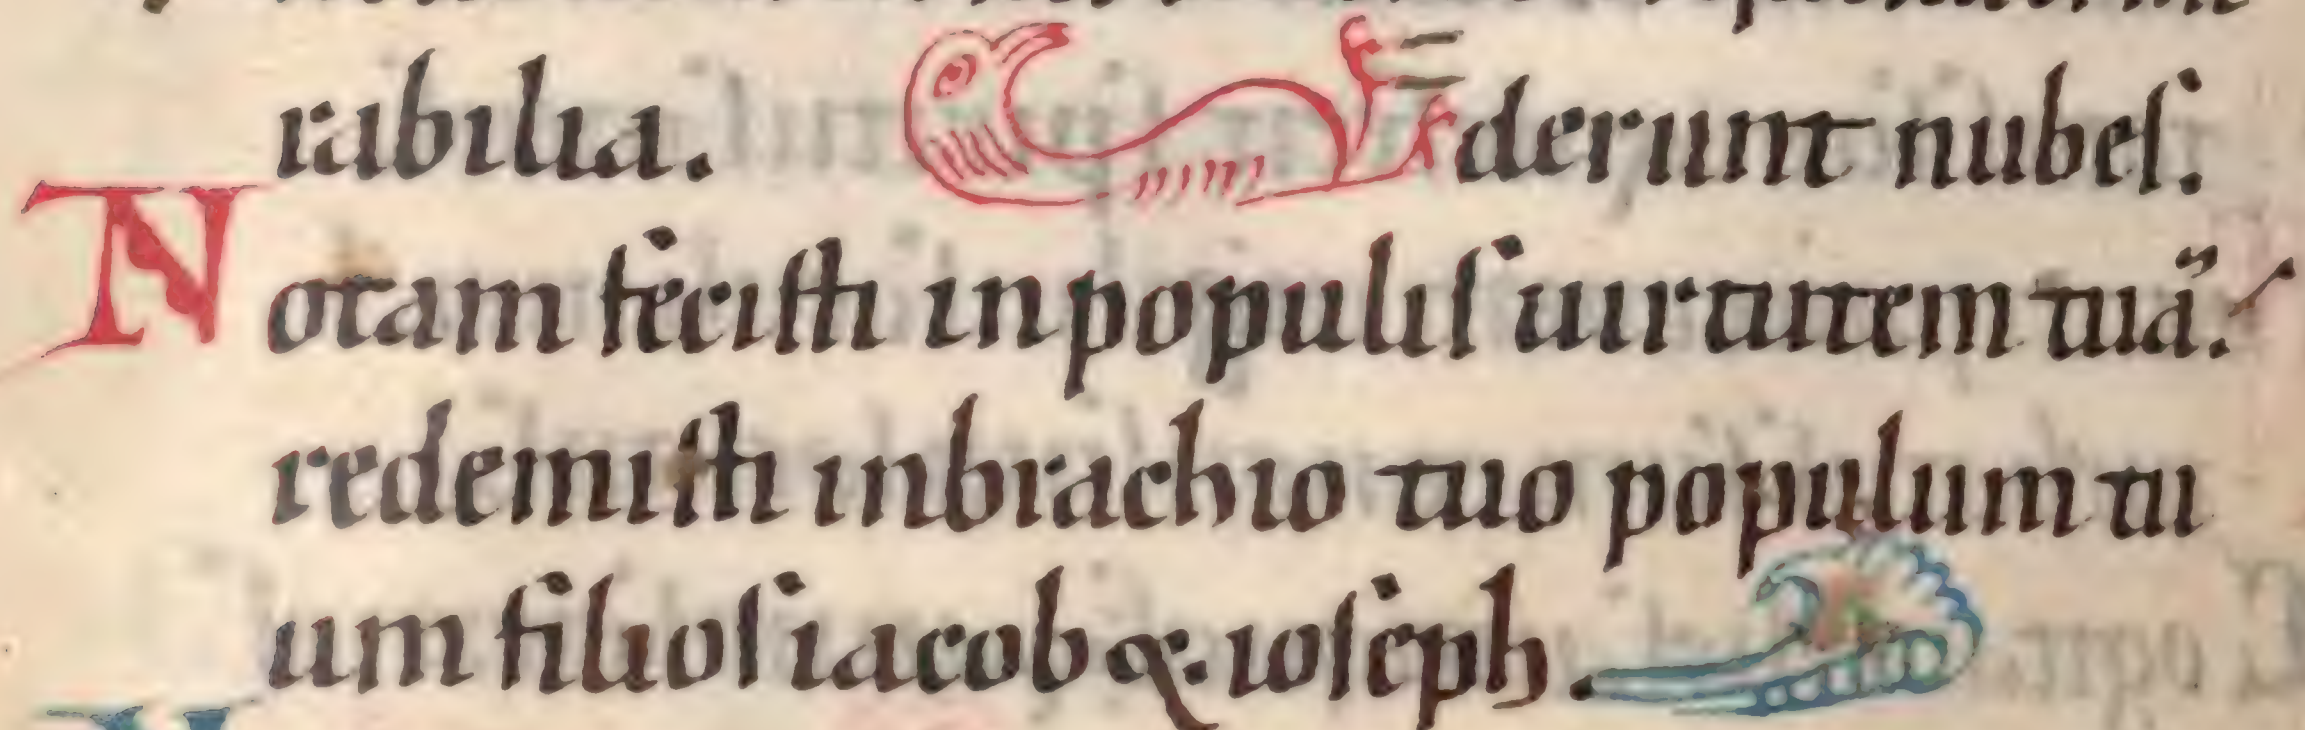 rabilia. derunt nubes.
Notam fecisti in populis uirtutem tuā.
redemisti inbrachio tuo populum tu
um filios iacob & ioseph.